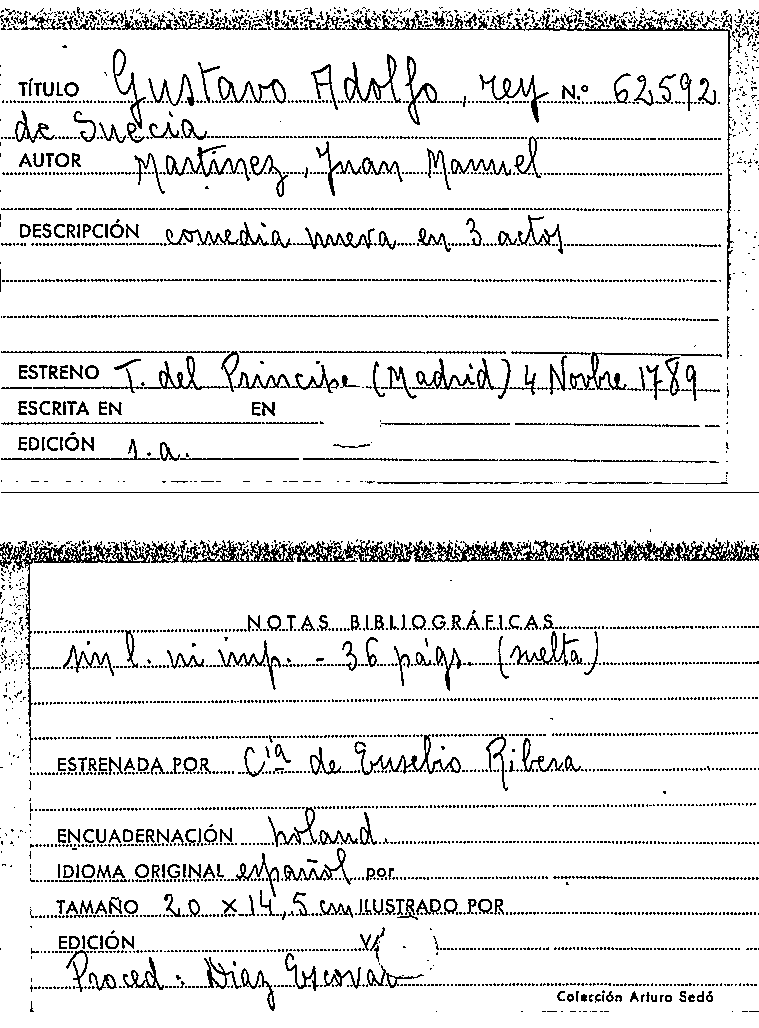 TÍTULO Gustavo Adolfo, rey N.º 62592
de Suecia
AUTOR Martinez, Juan Manuel
DESCRIPCIÓN comedia nueva en 3 actos
ESTRENO T. del Principe (Madrid) 4 Novbre 1789
ESCRITA EN EN
EDICIÓN s.a. —
NOTAS BIBLIOGRÁFICAS
sin l. ni imp. - 36 págs. (suelta)
ESTRENADA POR Cía de Eusebio Ribera
ENCUADERNACIÓN holand.
IDIOMA ORIGINAL español por
TAMAÑO 20 x 14,5 cm ILUSTRADO POR
EDICIÓN
Proced: Diaz Escovar
Colección Arturo Sedó